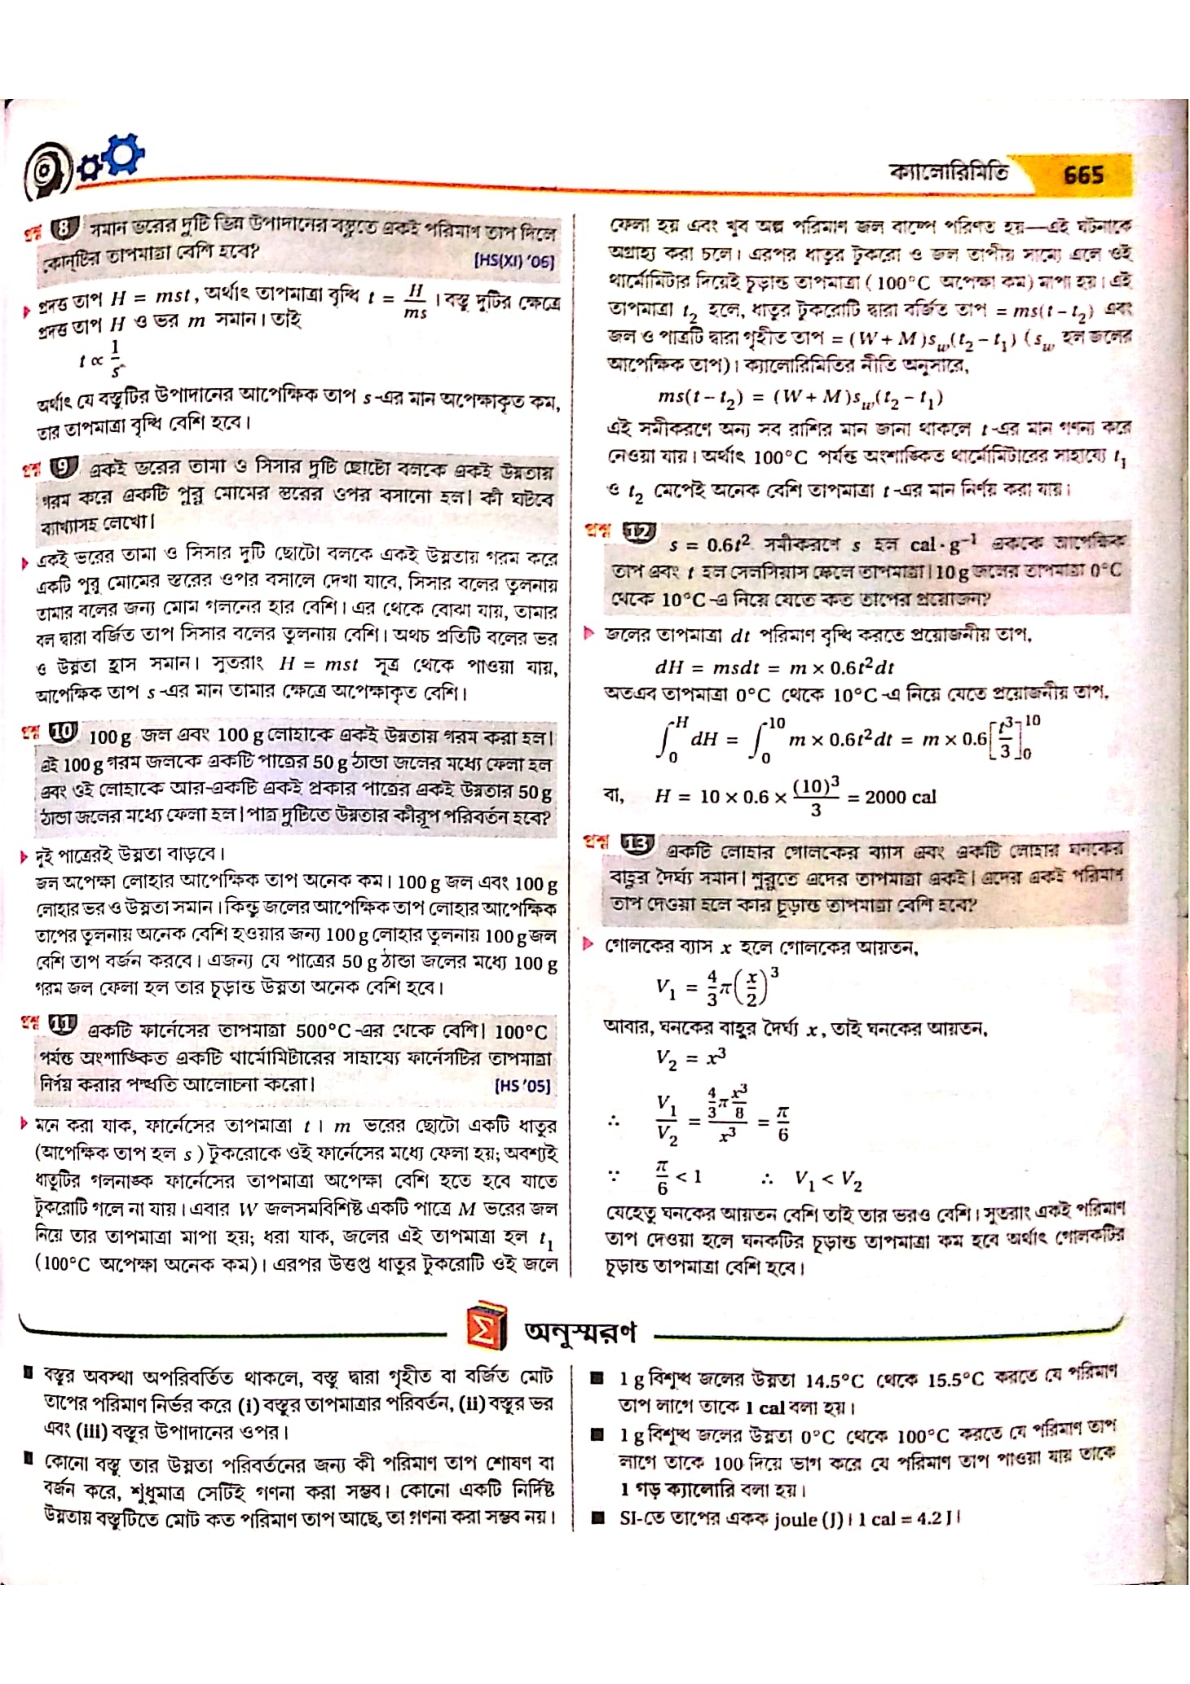 ক্যালোরিমিতি 665
প্রশ্ন 8 সমান ভরের দুটি ভিন্ন উপাদানের বস্তুতে একই পরিমাণ তাপ দিলে
কোন্‌টির তাপমাত্রা বেশি হবে? [HS(XI) '06]
প্রদত্ত তাপ H = mst, অর্থাৎ তাপমাত্রা বৃদ্ধি t = H/ms । বস্তু দুটির ক্ষেত্রে
প্রদত্ত তাপ H ও ভর m সমান। তাই
t ∝ 1/s
অর্থাৎ যে বস্তুটির উপাদানের আপেক্ষিক তাপ s-এর মান অপেক্ষাকৃত কম,
তার তাপমাত্রা বৃদ্ধি বেশি হবে।
প্রশ্ন 9 একই ভরের তামা ও সিসার দুটি ছোটো বলকে একই উষ্ণতায়
গরম করে একটি পুরু মোমের স্তরের ওপর বসানো হল। কী ঘটবে
ব্যাখ্যাসহ লেখো।
একই ভরের তামা ও সিসার দুটি ছোটো বলকে একই উষ্ণতায় গরম করে
একটি পুরু মোমের স্তরের ওপর বসালে দেখা যাবে, সিসার বলের তুলনায়
তামার বলের জন্য মোম গলনের হার বেশি। এর থেকে বোঝা যায়, তামার
বল দ্বারা বর্জিত তাপ সিসার বলের তুলনায় বেশি। অথচ প্রতিটি বলের ভর
ও উষ্ণতা হ্রাস সমান। সুতরাং H = mst সূত্র থেকে পাওয়া যায়,
আপেক্ষিক তাপ s-এর মান তামার ক্ষেত্রে অপেক্ষাকৃত বেশি।
প্রশ্ন 10 100 g জল এবং 100 g লোহাকে একই উষ্ণতায় গরম করা হল।
এই 100 g গরম জলকে একটি পাত্রের 50 g ঠান্ডা জলের মধ্যে ফেলা হল
এবং ওই লোহাকে আর-একটি একই প্রকার পাত্রের একই উষ্ণতার 50 g
ঠান্ডা জলের মধ্যে ফেলা হল। পাত্র দুটিতে উষ্ণতার কীরূপ পরিবর্তন হবে?
দুই পাত্রেরই উষ্ণতা বাড়বে।
জল অপেক্ষা লোহার আপেক্ষিক তাপ অনেক কম। 100 g জল এবং 100 g
লোহার ভর ও উষ্ণতা সমান। কিন্তু জলের আপেক্ষিক তাপ লোহার আপেক্ষিক
তাপের তুলনায় অনেক বেশি হওয়ার জন্য 100 g লোহার তুলনায় 100 g জল
বেশি তাপ বর্জন করবে। এজন্য যে পাত্রের 50 g ঠান্ডা জলের মধ্যে 100 g
গরম জল ফেলা হল তার চূড়ান্ত উষ্ণতা অনেক বেশি হবে।
প্রশ্ন 11 একটি ফার্নেসের তাপমাত্রা 500°C-এর থেকে বেশি। 100°C
পর্যন্ত অংশাঙ্কিত একটি থার্মোমিটারের সাহায্যে ফার্নেসটির তাপমাত্রা
নির্ণয় করার পদ্ধতি আলোচনা করো। [HS '05]
মনে করা যাক, ফার্নেসের তাপমাত্রা t । m ভরের ছোটো একটি ধাতুর
(আপেক্ষিক তাপ হল s) টুকরোকে ওই ফার্নেসের মধ্যে ফেলা হয়; অবশ্যই
ধাতুটির গলনাঙ্ক ফার্নেসের তাপমাত্রা অপেক্ষা বেশি হতে হবে যাতে
টুকরোটি গলে না যায়। এবার W জলসমবিশিষ্ট একটি পাত্রে M ভরের জল
নিয়ে তার তাপমাত্রা মাপা হয়; ধরা যাক, জলের এই তাপমাত্রা হল t₁
(100°C অপেক্ষা অনেক কম)। এরপর উত্তপ্ত ধাতুর টুকরোটি ওই জলে
ফেলা হয় এবং খুব অল্প পরিমাণ জল বাষ্পে পরিণত হয়—এই ঘটনাকে
অগ্রাহ্য করা চলে। এরপর ধাতুর টুকরো ও জল তাপীয় সাম্যে এলে ওই
থার্মোমিটার দিয়েই চূড়ান্ত তাপমাত্রা (100°C অপেক্ষা কম) মাপা হয়। এই
তাপমাত্রা t₂ হলে, ধাতুর টুকরোটি দ্বারা বর্জিত তাপ = ms(t – t₂) এবং
জল ও পাত্রটি দ্বারা গৃহীত তাপ = (W + M)s_w(t₂ – t₁) (s_w হল জলের
আপেক্ষিক তাপ)। ক্যালোরিমিতির নীতি অনুসারে,
ms(t – t₂) = (W + M)s_w(t₂ – t₁)
এই সমীকরণে অন্য সব রাশির মান জানা থাকলে t-এর মান গণনা করে
নেওয়া যায়। অর্থাৎ 100°C পর্যন্ত অংশাঙ্কিত থার্মোমিটারের সাহায্যে t₁
ও t₂ মেপেই অনেক বেশি তাপমাত্রা t-এর মান নির্ণয় করা যায়।
প্রশ্ন 12 s = 0.6t² সমীকরণে s হল cal·g⁻¹ এককে আপেক্ষিক
তাপ এবং t হল সেলসিয়াস স্কেলে তাপমাত্রা। 10 g জলের তাপমাত্রা 0°C
থেকে 10°C-এ নিয়ে যেতে কত তাপের প্রয়োজন?
জলের তাপমাত্রা dt পরিমাণ বৃদ্ধি করতে প্রয়োজনীয় তাপ,
dH = msdt = m × 0.6t²dt
অতএব তাপমাত্রা 0°C থেকে 10°C-এ নিয়ে যেতে প্রয়োজনীয় তাপ,
∫₀ᴴ dH = ∫₀¹⁰ m × 0.6t²dt = m × 0.6[t³/3]₀¹⁰
বা, H = 10 × 0.6 × (10)³/3 = 2000 cal
প্রশ্ন 13 একটি লোহার গোলকের ব্যাস এবং একটি লোহার ঘনকের
বাহুর দৈর্ঘ্য সমান। শুরুতে এদের তাপমাত্রা একই। এদের একই পরিমাণ
তাপ দেওয়া হলে কার চূড়ান্ত তাপমাত্রা বেশি হবে?
গোলকের ব্যাস x হলে গোলকের আয়তন,
V₁ = 4/3 π(x/2)³
আবার, ঘনকের বাহুর দৈর্ঘ্য x, তাই ঘনকের আয়তন,
V₂ = x³
∴ V₁/V₂ = (4/3 π x³/8)/x³ = π/6
∵ π/6 < 1 ∴ V₁ < V₂
যেহেতু ঘনকের আয়তন বেশি তাই তার ভরও বেশি। সুতরাং একই পরিমাণ
তাপ দেওয়া হলে ঘনকটির চূড়ান্ত তাপমাত্রা কম হবে অর্থাৎ গোলকটির
চূড়ান্ত তাপমাত্রা বেশি হবে।
Σ অনুস্মরণ
বস্তুর অবস্থা অপরিবর্তিত থাকলে, বস্তু দ্বারা গৃহীত বা বর্জিত মোট
তাপের পরিমাণ নির্ভর করে (i) বস্তুর তাপমাত্রার পরিবর্তন, (ii) বস্তুর ভর
এবং (iii) বস্তুর উপাদানের ওপর।
কোনো বস্তু তার উষ্ণতা পরিবর্তনের জন্য কী পরিমাণ তাপ শোষণ বা
বর্জন করে, শুধুমাত্র সেটিই গণনা করা সম্ভব। কোনো একটি নির্দিষ্ট
উষ্ণতায় বস্তুটিতে মোট কত পরিমাণ তাপ আছে, তা গণনা করা সম্ভব নয়।
1 g বিশুদ্ধ জলের উষ্ণতা 14.5°C থেকে 15.5°C করতে যে পরিমাণ
তাপ লাগে তাকে 1 cal বলা হয়।
1 g বিশুদ্ধ জলের উষ্ণতা 0°C থেকে 100°C করতে যে পরিমাণ তাপ
লাগে তাকে 100 দিয়ে ভাগ করে যে পরিমাণ তাপ পাওয়া যায় তাকে
1 গড় ক্যালোরি বলা হয়।
SI-তে তাপের একক joule (J)। 1 cal = 4.2 J।